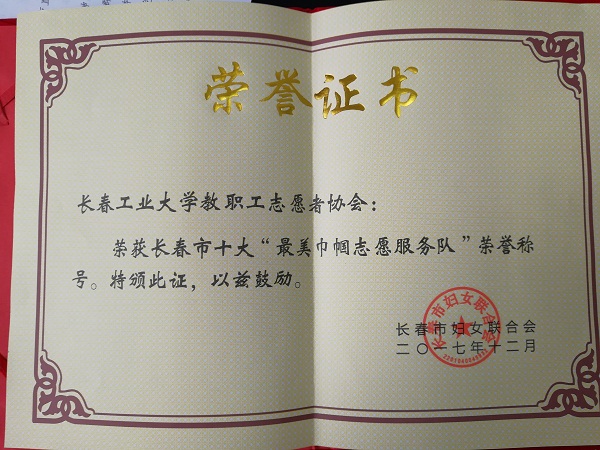 荣誉证书
长春工业大学教职工志愿者协会：
荣获长春市十大“最美巾帼志愿服务队”荣誉称
号。特颁此证，以兹鼓励。
长春市妇女联合会
二〇一七年十二月
长春市妇女联合会